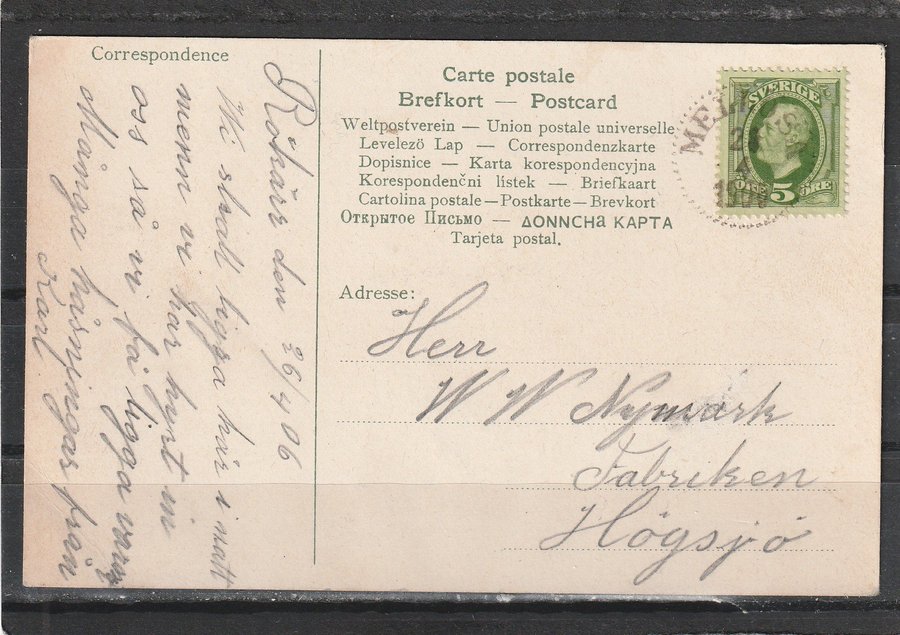 Correspondence
Rökärr den 26/4 06
Vi skall ligga här i natt
menn vi har hyrt in
oss så vi få ligga varmt
Många hälsningar från
Karl.
Carte postale
Brefkort — Postcard
Weltpostverein — Union postale universelle
Levelezö Lap — Correspondenzkarte
Dopisnice — Karta korespondencyjna
Korespondenčni lístek — Briefkaart
Cartolina postale - Postkarte - Brevkort
Открытое Письмо — ΔΟΝΝCHа ΚΑΡΤΑ
Tarjeta postal.
SVERIGE
ÖRE 5 ÖRE
Adresse:
Herr
W W Nymark
Fabriken
Högsjö